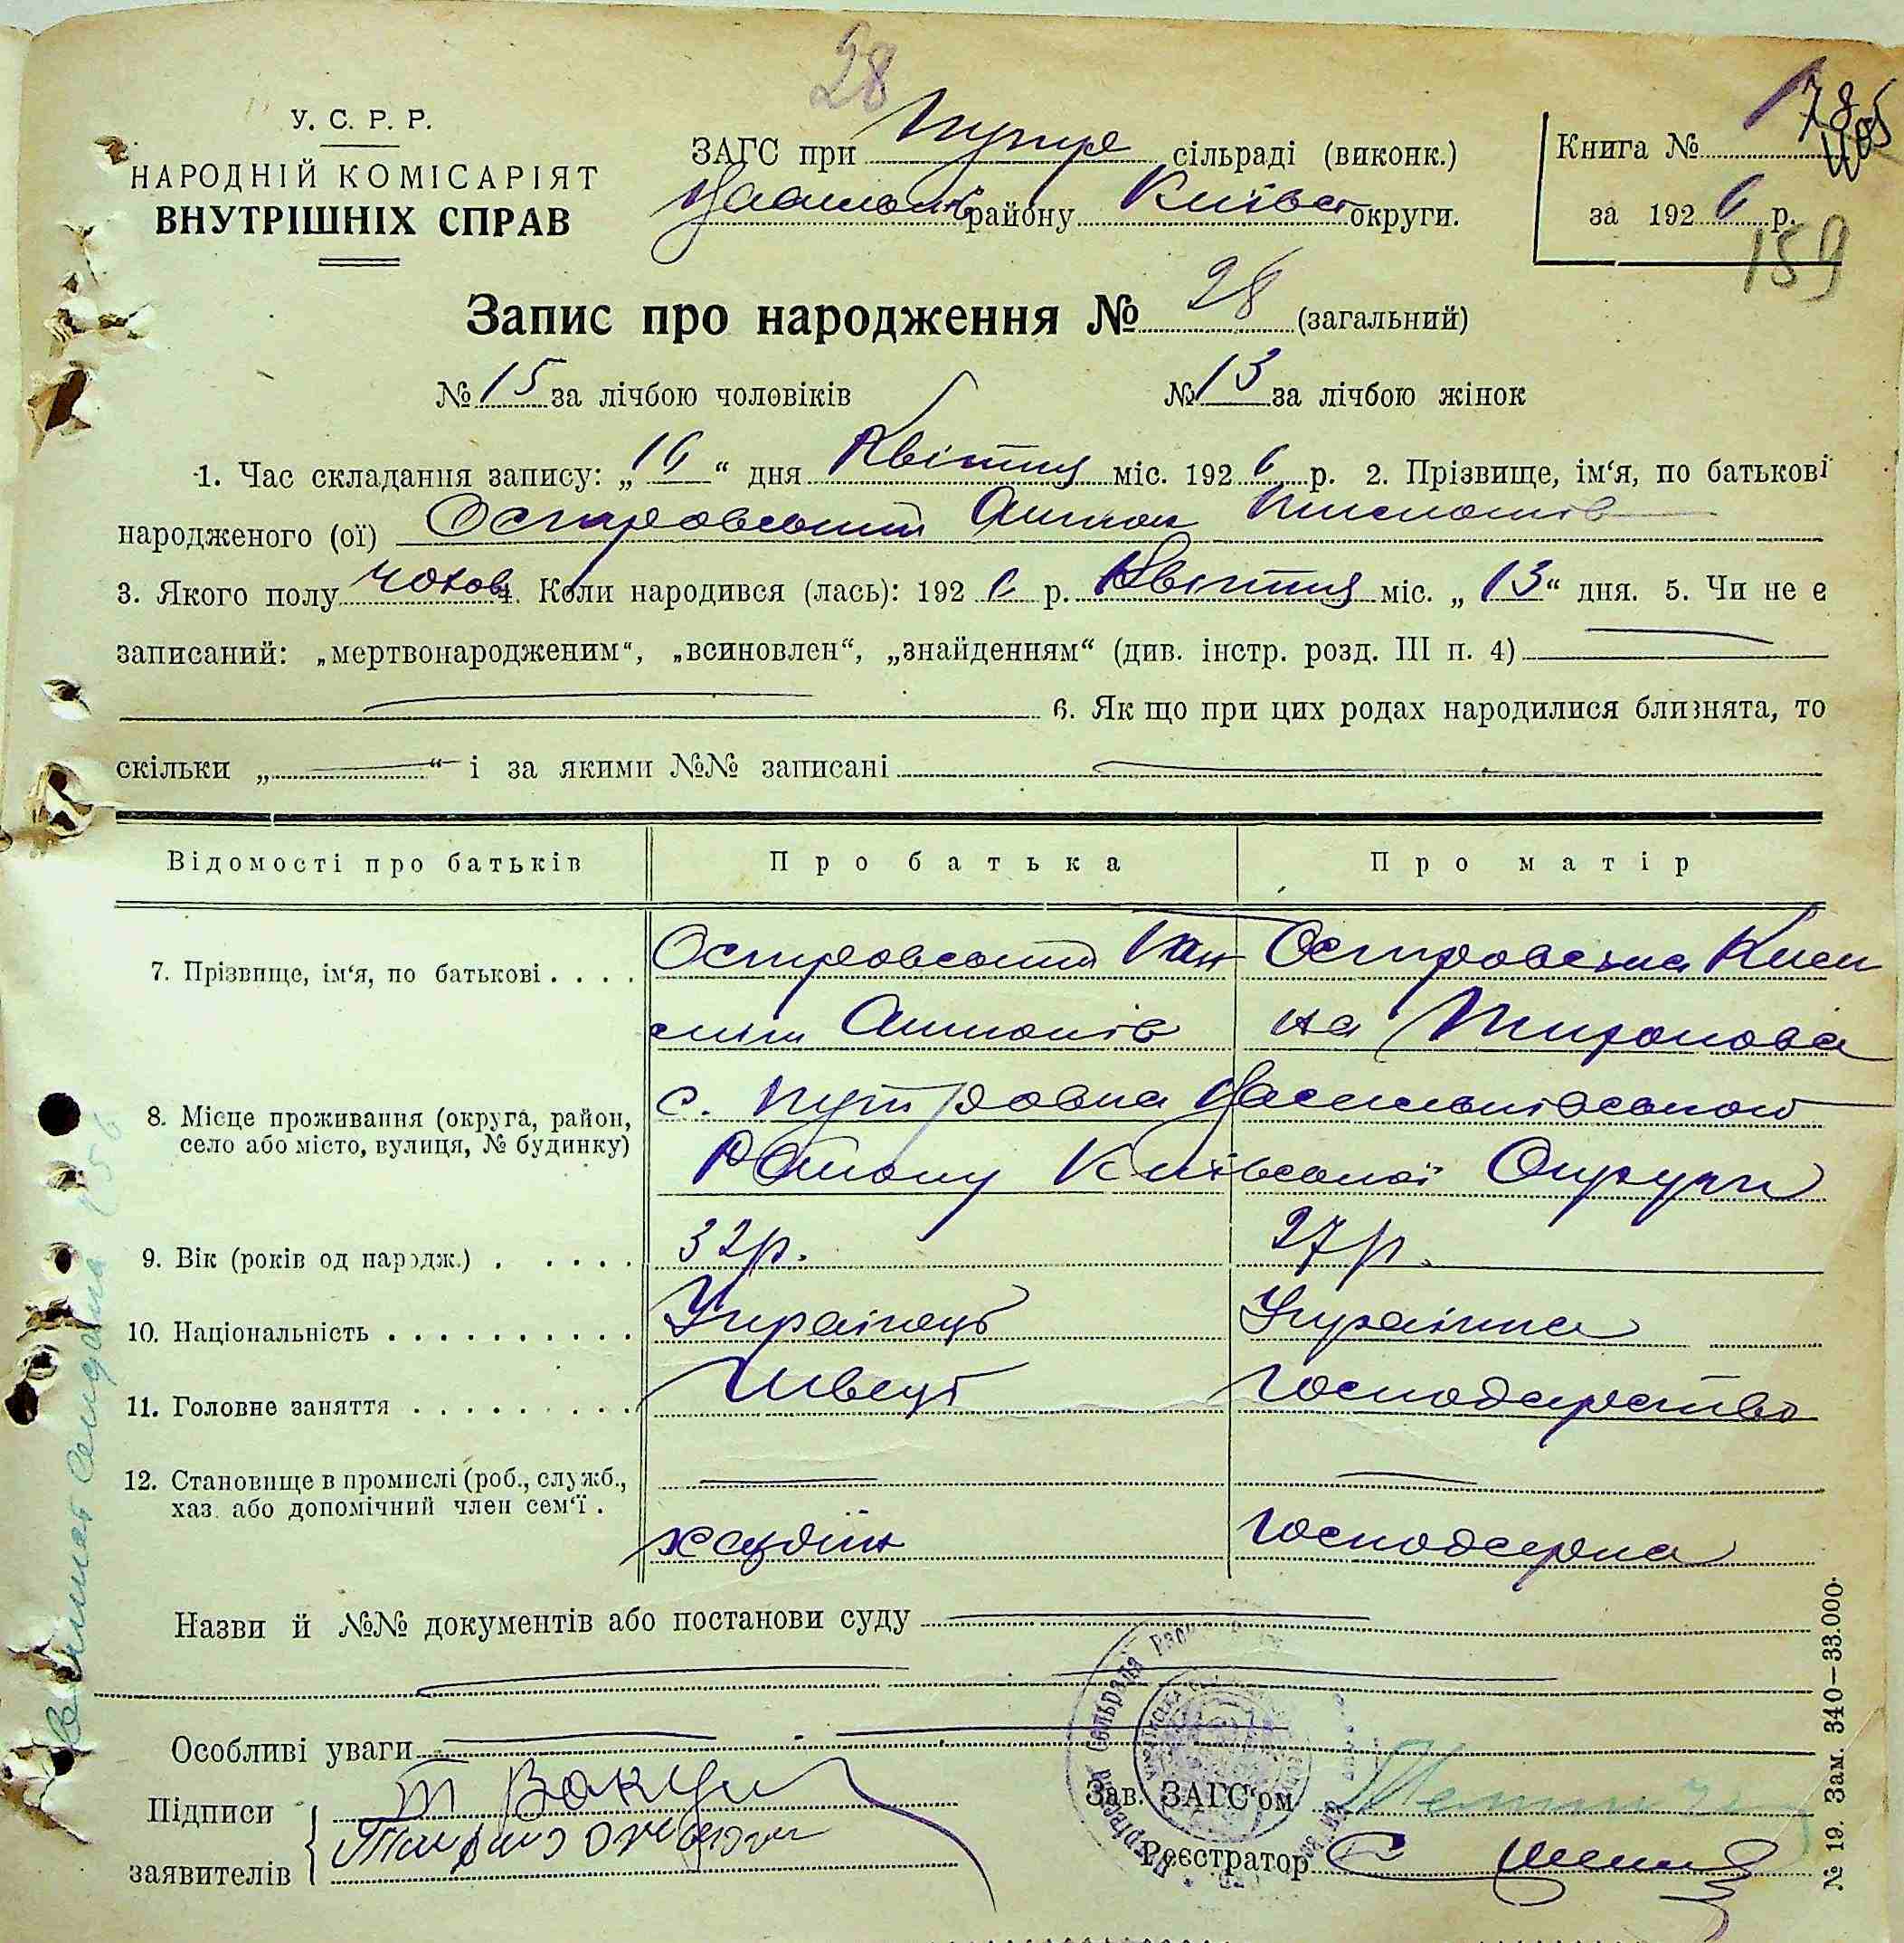 28
У. С. Р. Р.
НАРОДНІЙ КОМІСАРІЯТ
ВНУТРІШНІХ СПРАВ
ЗАГС при сільраді (виконк.)
району Київськ округи.
Книга №
за 1926 р.
159
Запис про народження № 28 (загальний)
№ 15 за лічбою чоловіків № 13 за лічбою жінок
1. Час складання запису: „16“ дня Квітня міс. 1926 р. 2. Прізвище, ім‘я, по батькові
народженого (ої) Островський Антон
3. Якого полу чолов. 4. Коли народився (лась): 1926 р. Квітня міс. „13“ дня. 5. Чи не є
записаний: „мертвонародженим“, „всиновлен“, „знайденням“ (див. інстр. розд. III п. 4)
6. Як що при цих родах народилися близнята, то
скільки „ “ і за якими №№ записані
Відомості про батьків Про батька Про матір
7. Прізвище, ім‘я, по батькові . . . . Островський Островська
Антонів на Миронова
8. Місце проживання (округа, район, с. Путрівка Васильківського
село або місто, вулиця, № будинку) Району Київської Округи
9. Вік (років од народж.) . . . . . 32 р. 27 р.
10. Національність . . . . . . . . . . Українець Українка
11. Головне заняття . . . . . . . . . Швець господарство
12. Становище в промислі (роб., служб.,
хаз. або допомічний член сем‘ї . хазяїн господарка
Назви й №№ документів або постанови суду
Особливі уваги
Підписи
заявителів
Зав. ЗАГС‘ом
Реєстратор
№ 19. Зам. 340—33.000.